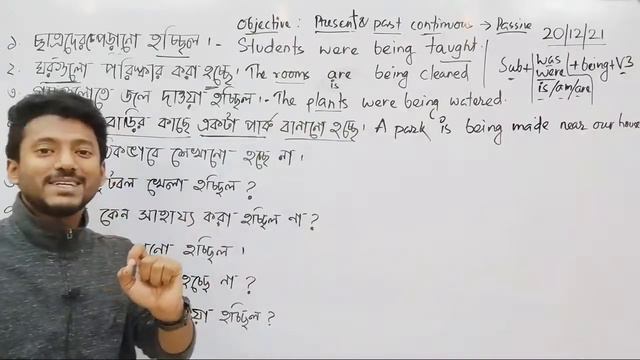 Objective: Present & past continuous → Passive
20/12/21
১. ছাত্রদেরকে পড়ানো হচ্ছিল। - Students were being taught.
Sub + was/were + being + V3
is/am/are
২. ঘরগুলো পরিষ্কার করা হচ্ছে। The rooms are being cleaned
is
৩. জল দাওয়া হচ্ছিল. - The plants were being watered.
কাছে একটা পার্ক বানানো হচ্ছে। A park is being made near our house
শেখানো হচ্ছে না।
খেলা হচ্ছিল?
কেন সাহায্য করা হচ্ছিল না?
হচ্ছিল।
হচ্ছে না?
হচ্ছিল?